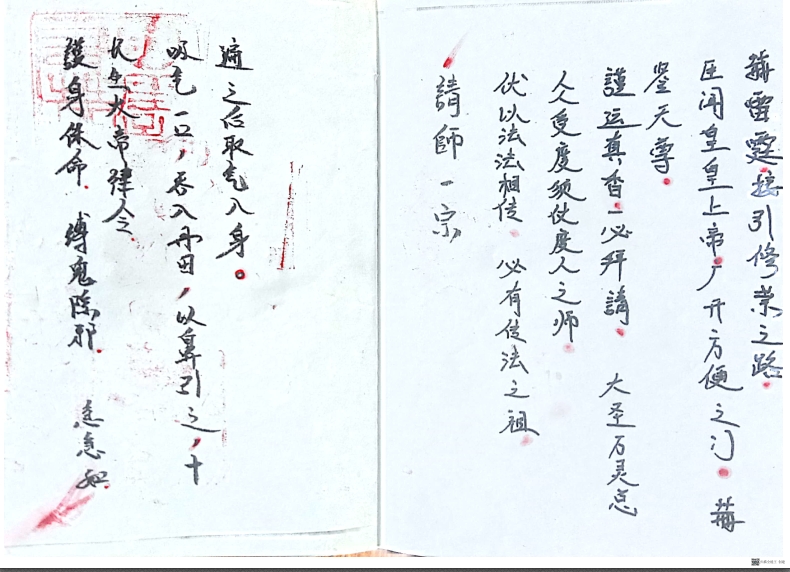 護身保命 縛鬼除邪 急急如
長生大帝律令
吸气一口,吞入丹田,以鼻引之,十
遍之后取气入身。
請師一宗
伏以法法相传 必有传法之祖
人人受度须仗度人之师
謹运真香一心拜請 大圣万灵总
鉴天尊
臣闻皇皇上帝广开方便之门
雷霆接引修之路